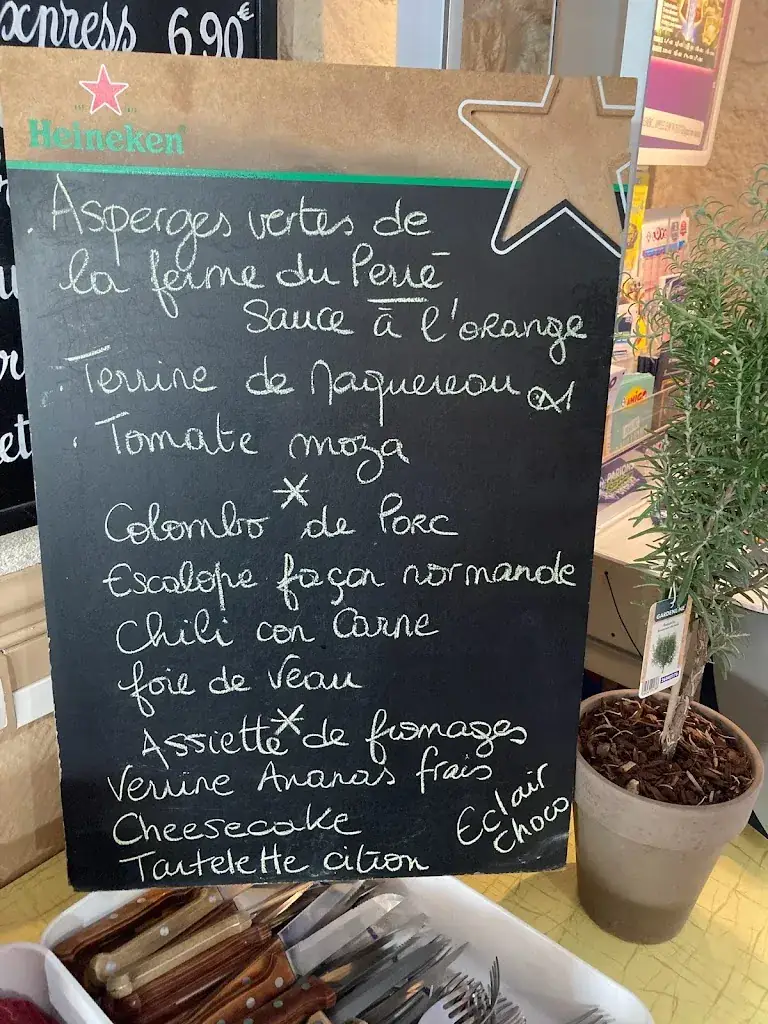 xpress 6.90€
Heineken
. Asperges vertes de
la ferme du Perré
Sauce à l'orange
. Terrine de Maquereau
. Tomate moza
*
Colombo de Porc
Escalope façon normande
Chili con Carne
foie de Veau
*
Assiette de fromages
Verrine Ananas frais
Cheesecake
Eclair
choco
Tartelette citron
GARDENLINE